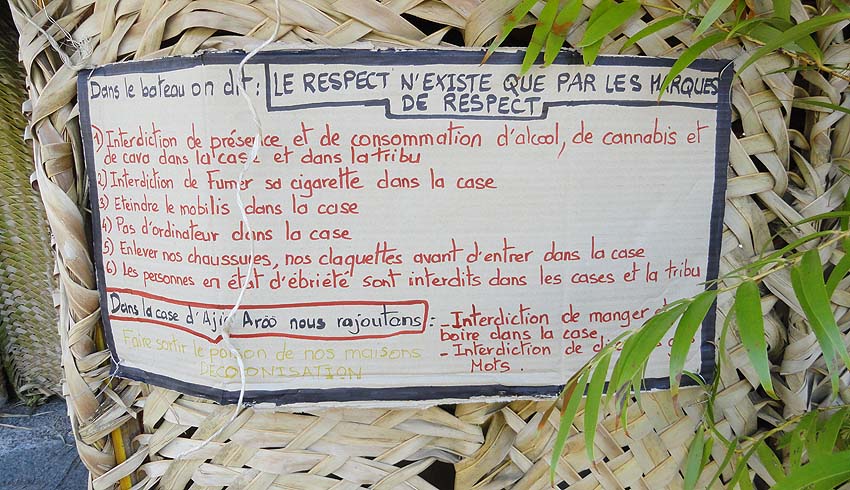 Dans le bateau on dit : LE RESPECT N'EXISTE QUE PAR LES MARQUES
DE RESPECT
1) Interdiction de présence et de consommation d'alcool, de cannabis et
de cava dans la case et dans la tribu
2) Interdiction de Fumer sa cigarette dans la case
3) Eteindre le mobilis dans la case
4) Pas d'ordinateur dans la case
5) Enlever nos chaussures, nos claquettes avant d'entrer dans la case
6) Les personnes en état d'ébriété sont interdits dans les cases et la tribu
Dans la case d'Ajië Aröö nous rajoutons : - Interdiction de manger
boire dans la case
- Interdiction de
Mots.
Faire sortir le poison de nos maisons
DECOLONISATION